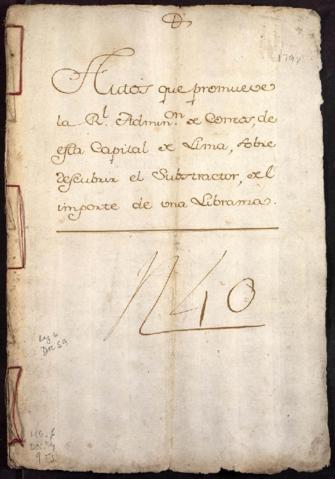 D
1798
Autos que promueve
la Rl Adminn de Correos, de
esta Capital de Lima, sobre
descubrir el Substractor, del
importe de una Libransa.
N 40
Leg 6
Doc 59